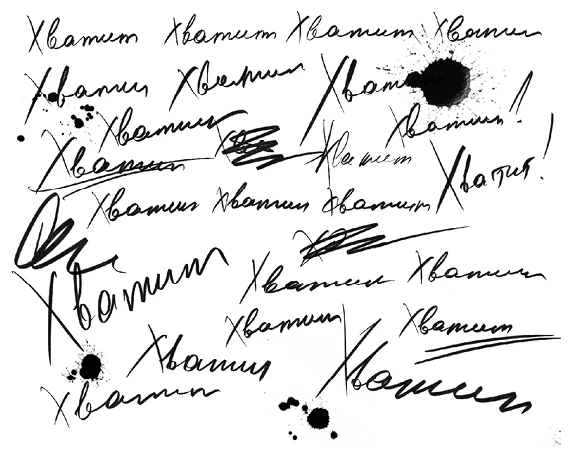 Хватит Хватит Хватит Хватит
Хватит Хватит Хватит
Хватит Хватит!
Хватит Хватит Хватит!
Хватит Хватит Хватит
Хватит
Хватит Хватит
Хватит Хватит
Хватит Хватит
Хватит